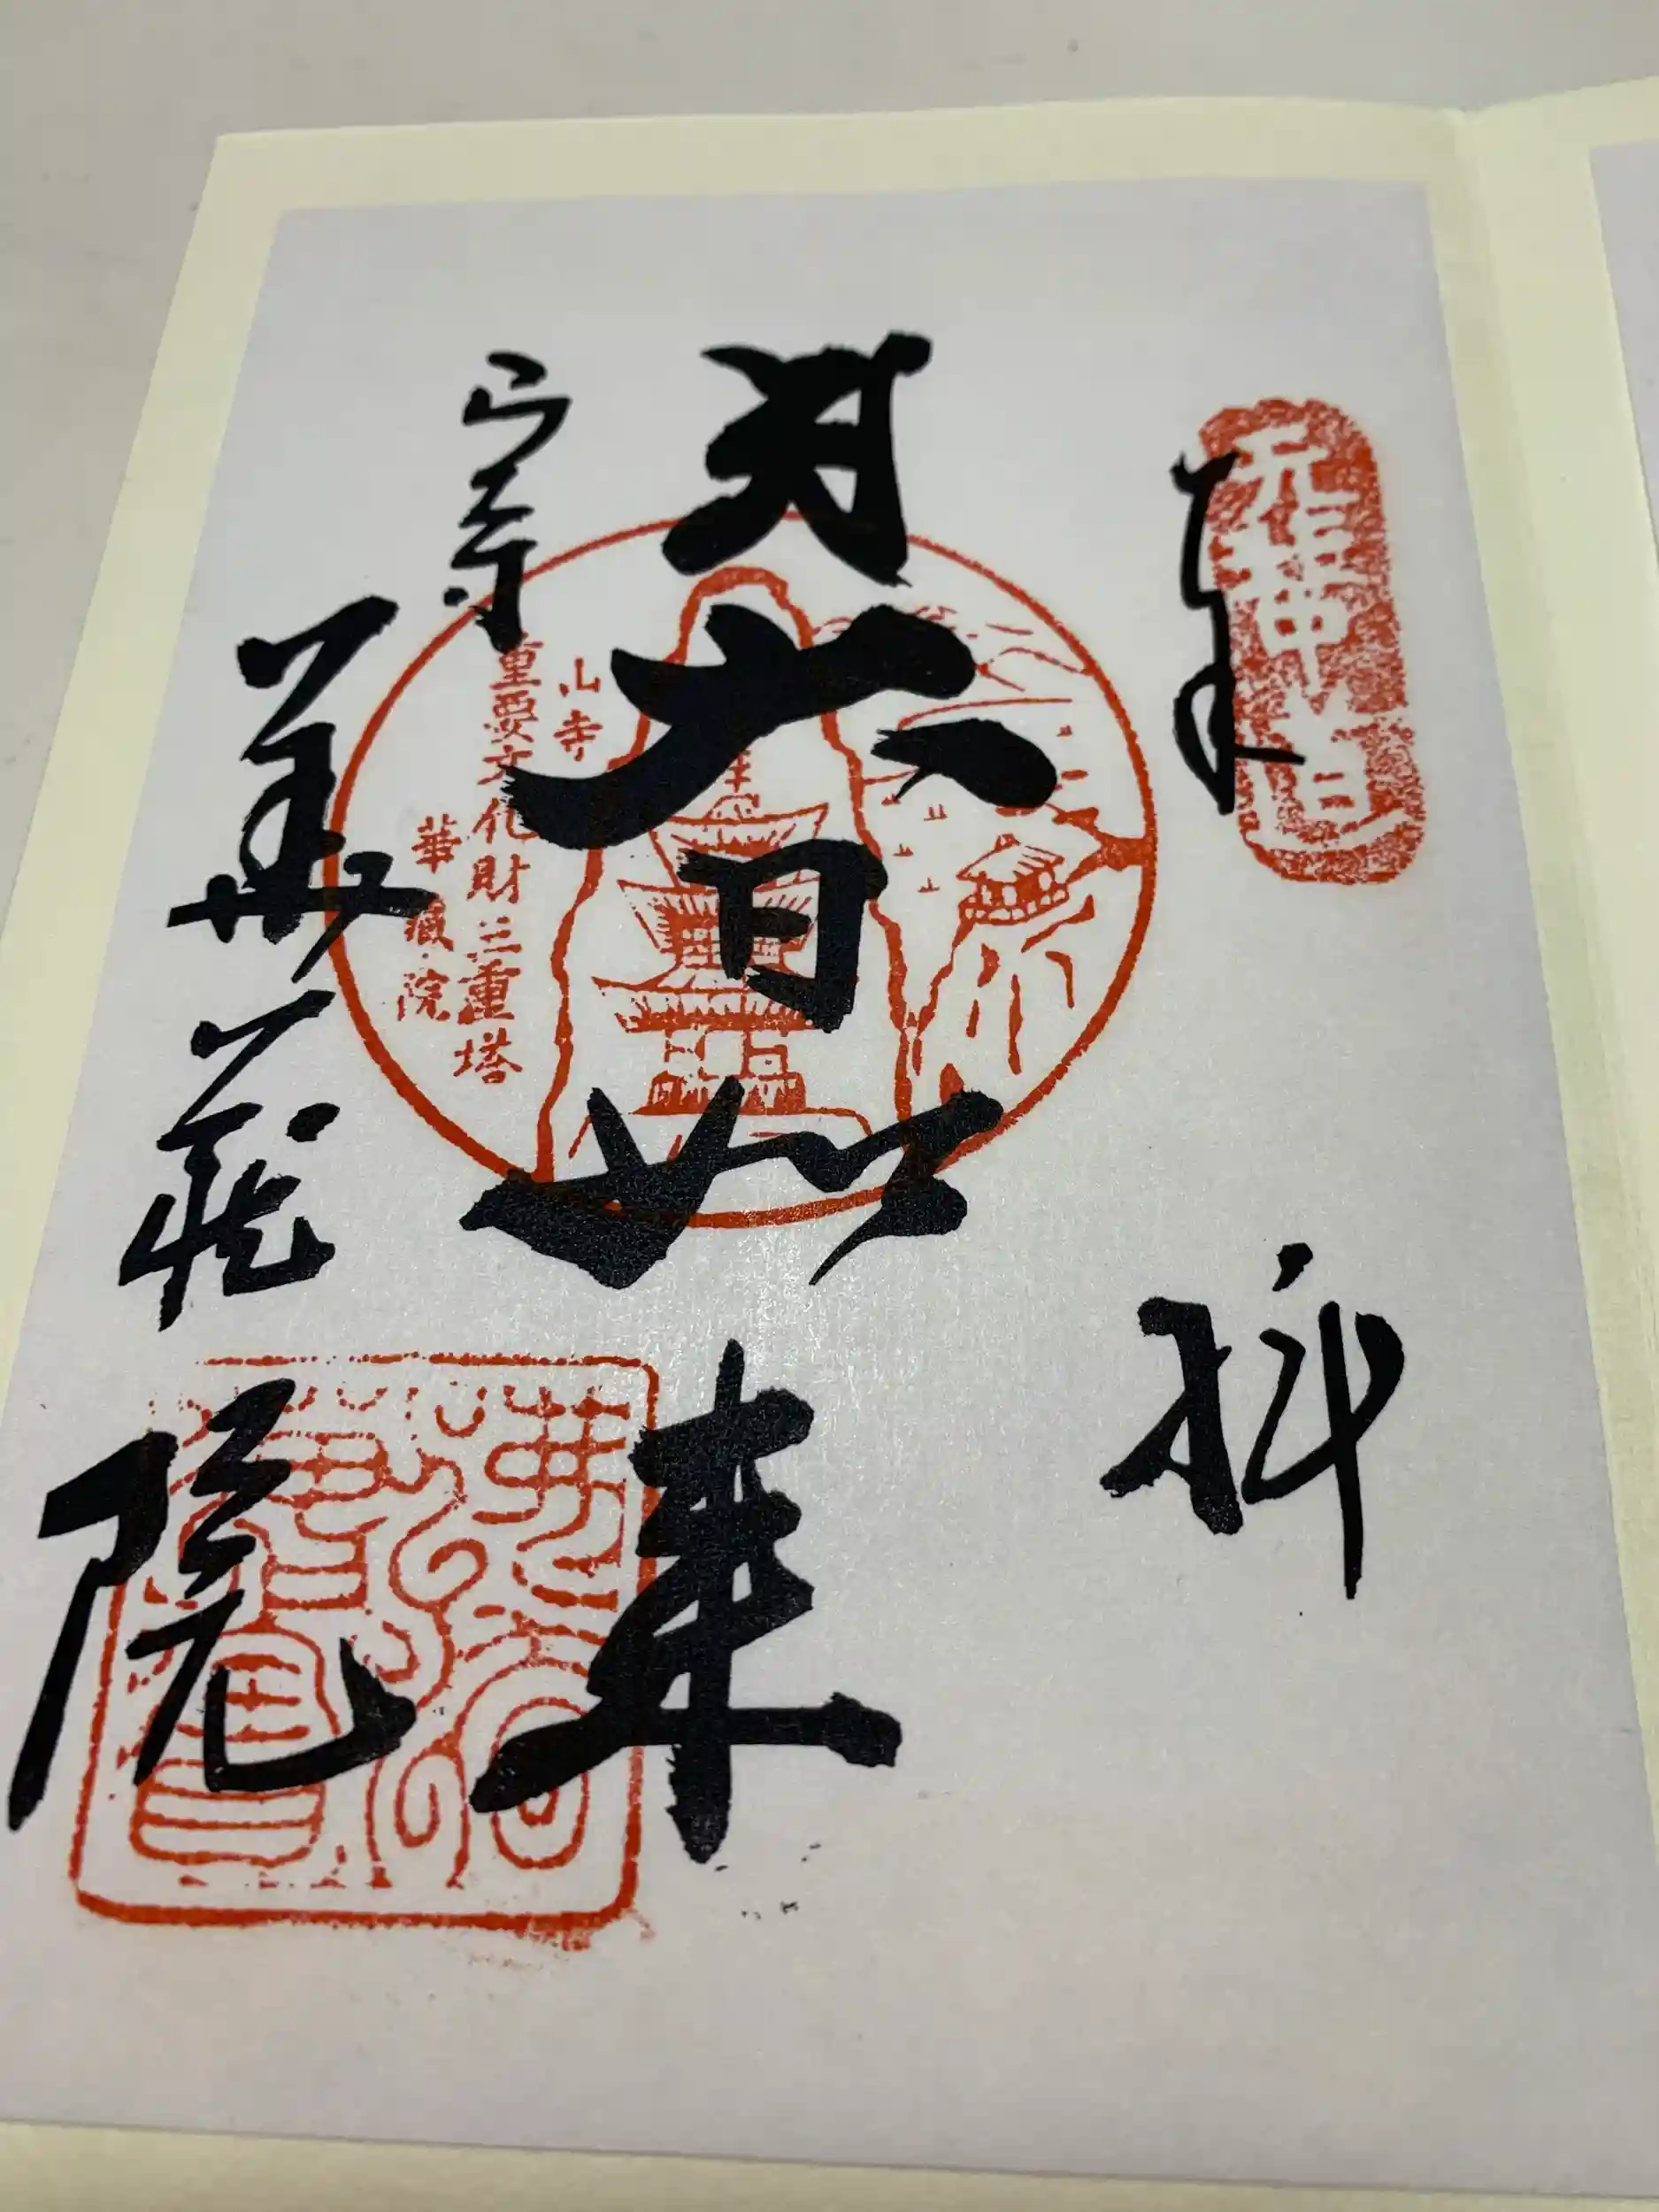 奉拝
大日如来
山寺
華蔵院
山寺
重要文化財三重塔
華藏院